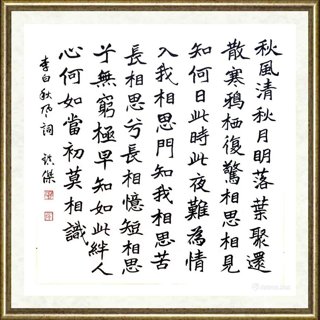 秋風清秋月明落葉聚還
散寒鴉栖復驚相思相見
知何日此時此夜難為情
入我相思門知我相思苦
長相思兮長相憶短相思
兮無窮極早知如此絆人
心何如當初莫相識
李白秋風詞